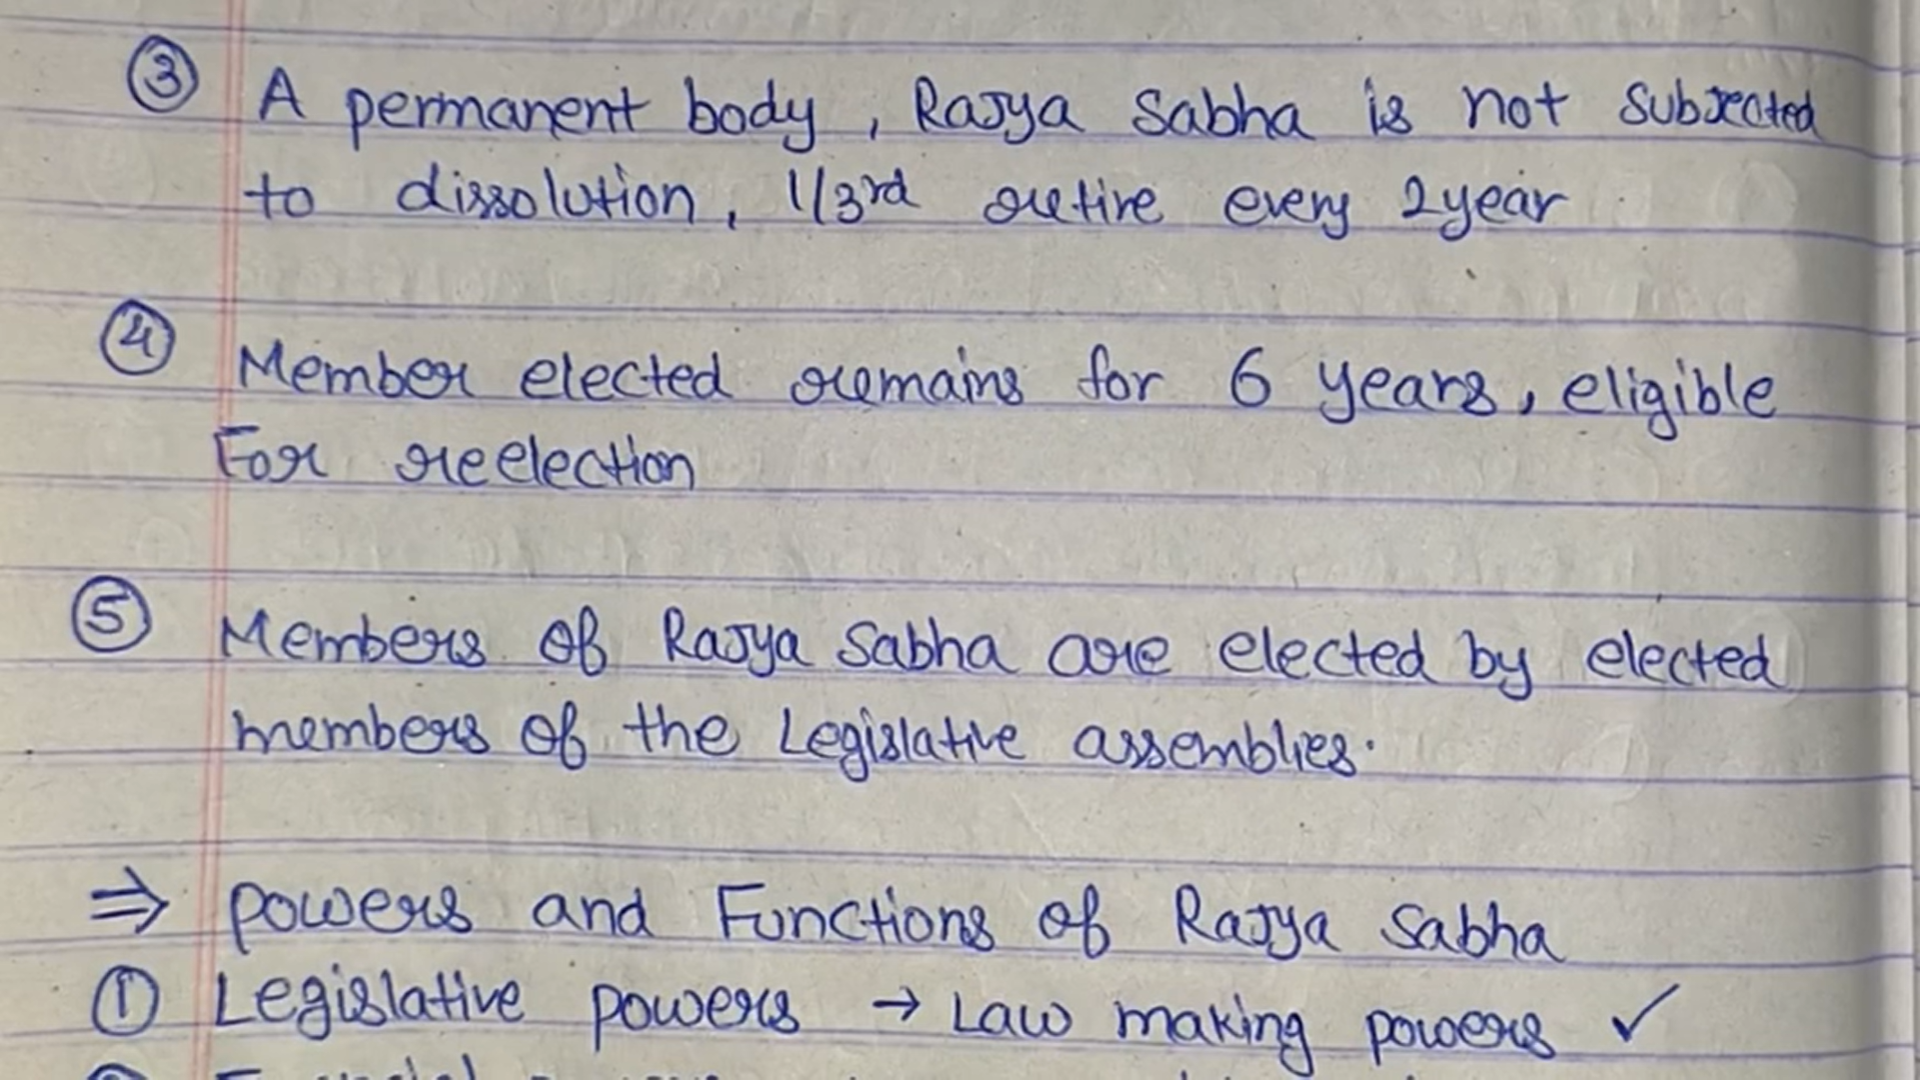 ③ A permanent body, Rajya Sabha is not subjected
to dissolution, 1/3rd retire every 2year
④ Member elected remains for 6 years, eligible
For reelection
⑤ Members of Rajya Sabha are elected by elected
members of the Legislative assemblies.
⇒ powers and Functions of Rajya Sabha
① Legislative powers → Law making powers ✓